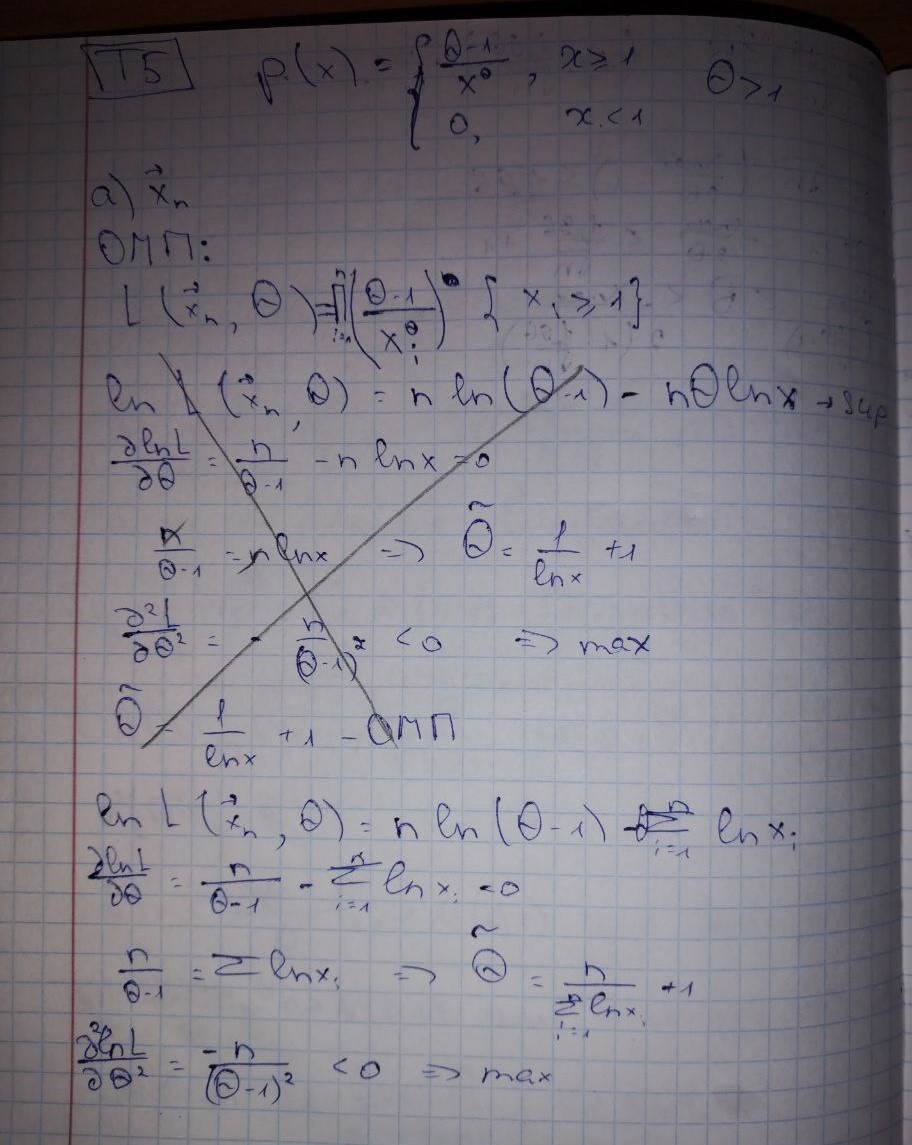 T5 p(x) = { (θ-1)/x^θ, x ≥ 1 θ > 1
0, x < 1
a) x⃗ₙ
ОМП:
L(x⃗ₙ, θ) = ∏ᵢ₌₁ⁿ ((θ-1)/xᵢ^θ) { xᵢ ≥ 1}
ln L(x⃗ₙ, θ) = n ln(θ-1) - nθ ln x → sup
∂lnL/∂θ = n/(θ-1) - n ln x = 0
n/(θ-1) = n ln x => θ̃ = 1/ln x + 1
∂²L/∂θ² = - n/(θ-1)² < 0 => max
θ̃ = 1/ln x + 1 - ОМП
ln L(x⃗ₙ, θ) = n ln(θ-1) - θ∑ᵢ₌₁ⁿ ln xᵢ
∂lnL/∂θ = n/(θ-1) - ∑ᵢ₌₁ⁿ ln xᵢ = 0
n/(θ-1) = ∑ ln xᵢ => θ̃ = n/∑ᵢ₌₁ⁿ ln xᵢ + 1
∂²lnL/∂θ² = -n/(θ-1)² < 0 => max